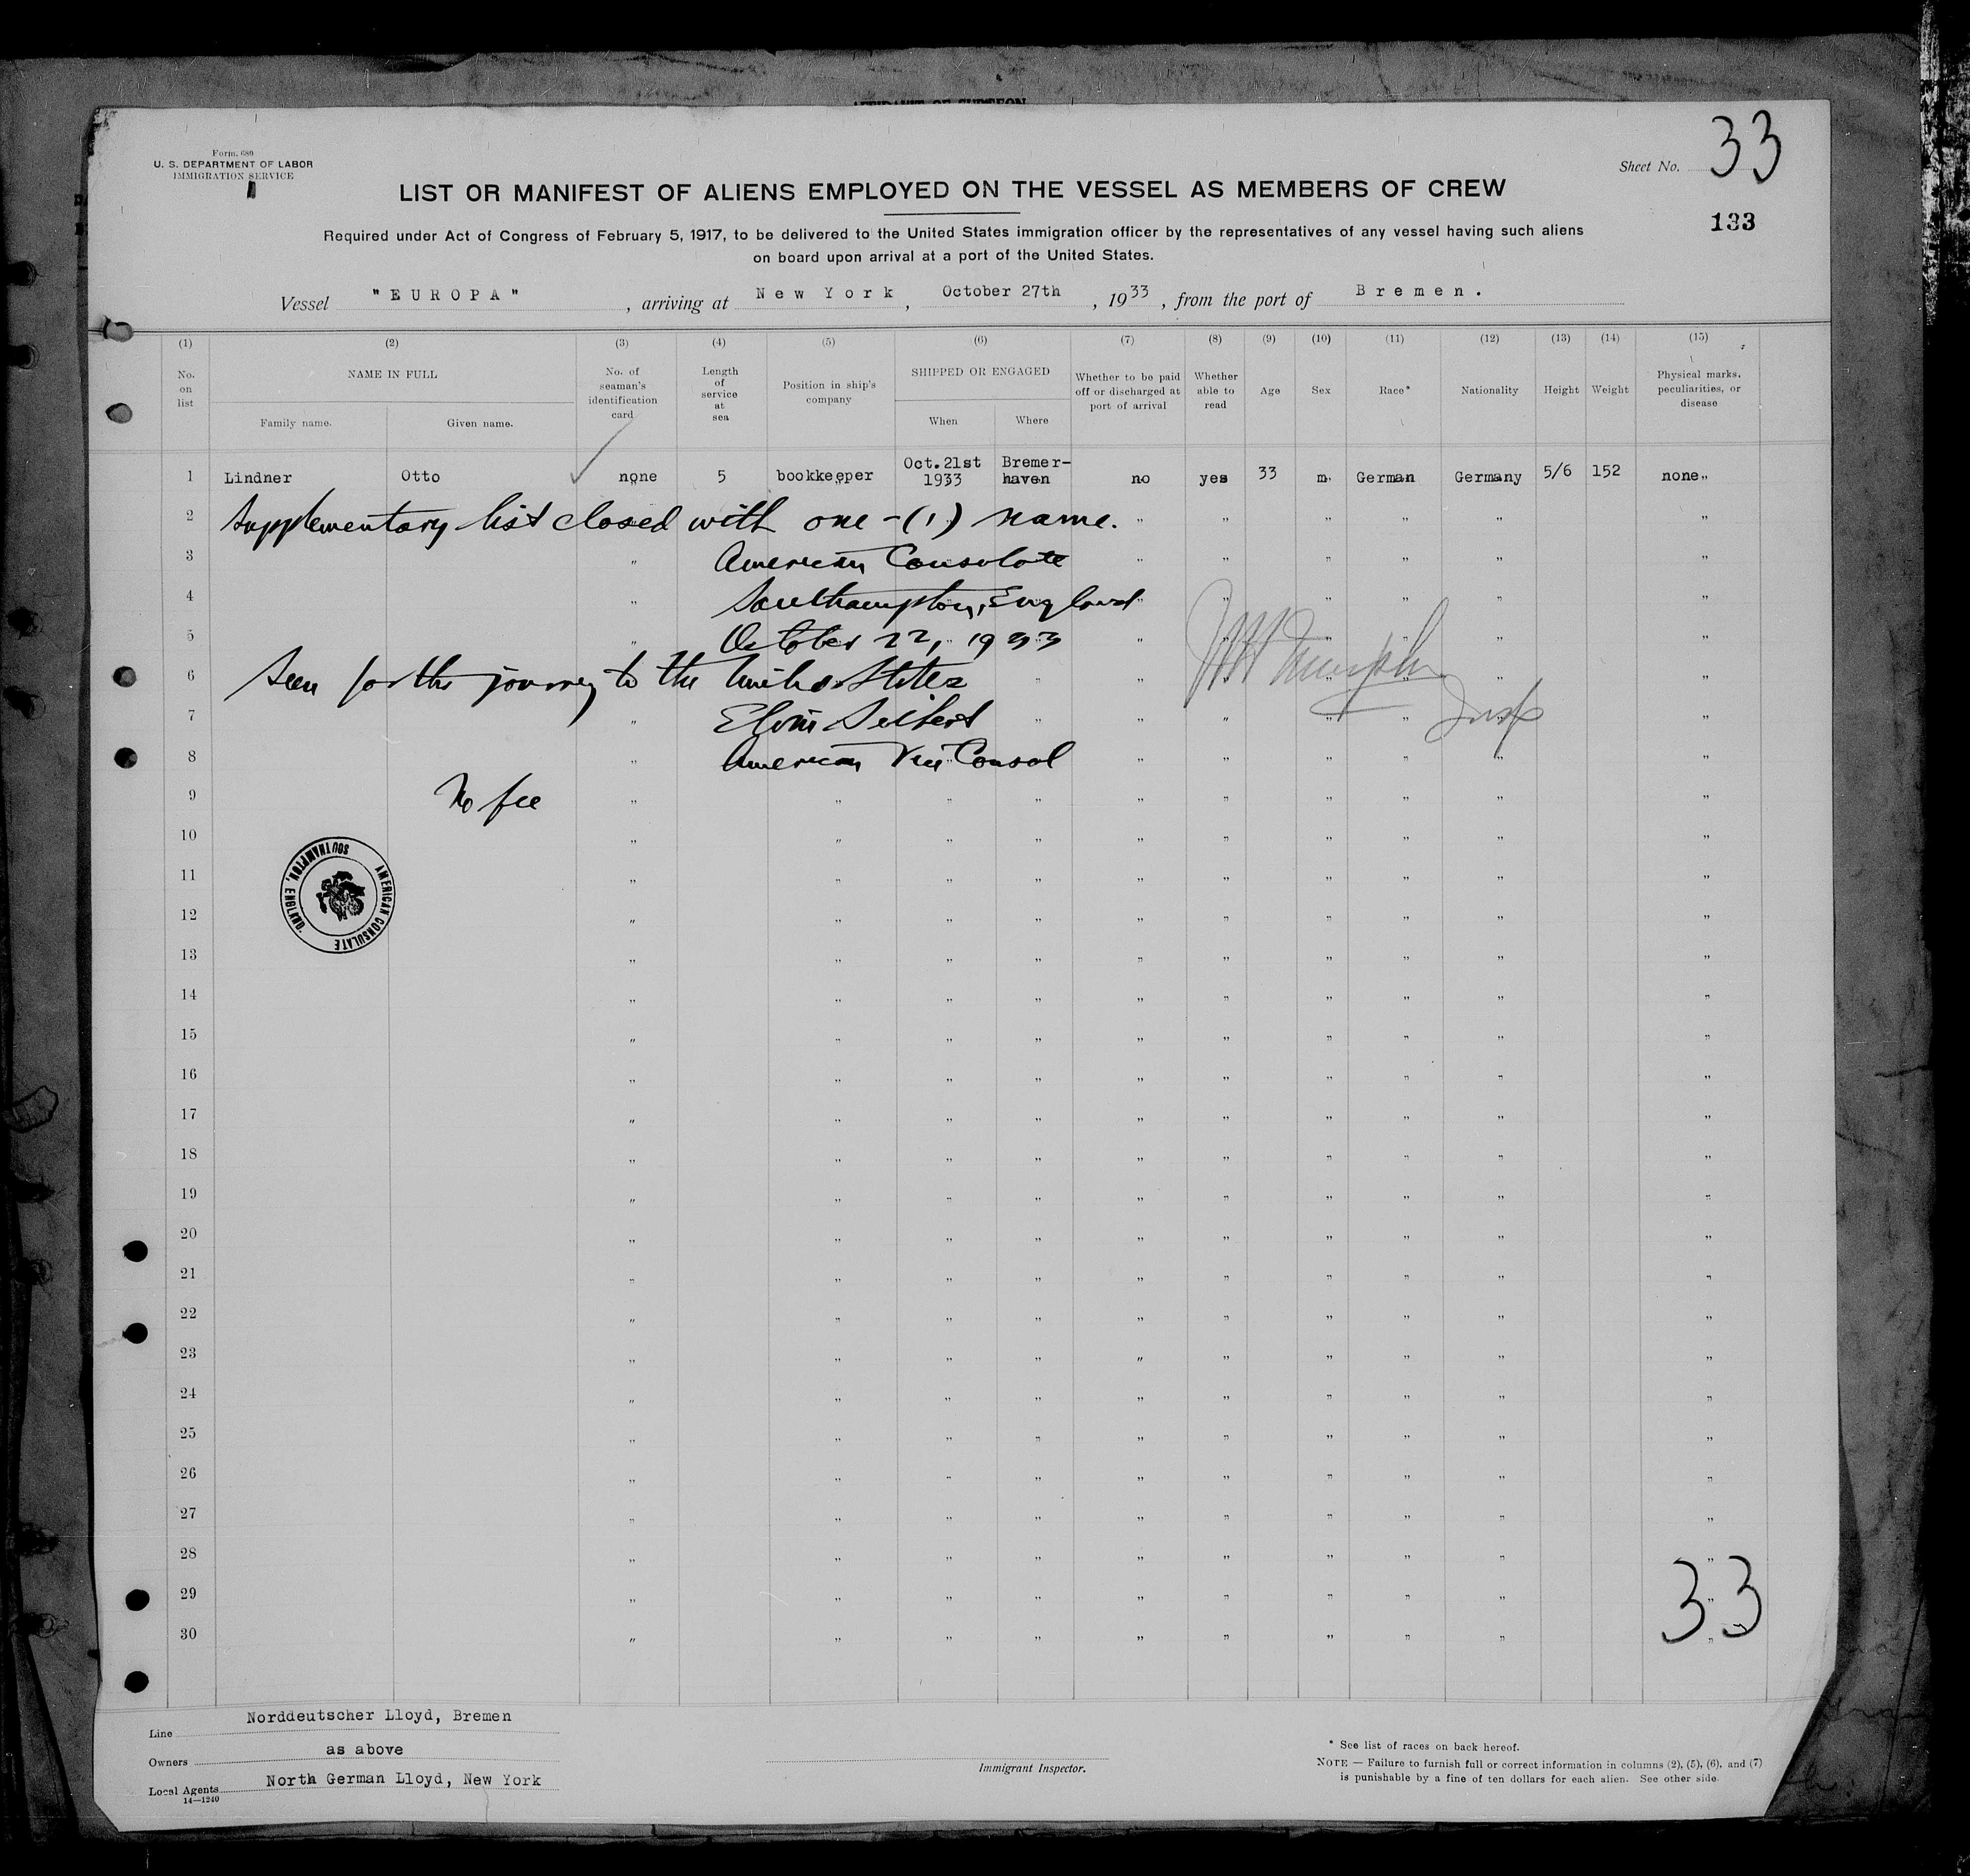 AFFIDAVIT OF SURGEON
Form 680
U. S. DEPARTMENT OF LABOR
IMMIGRATION SERVICE
Sheet No. 33
LIST OR MANIFEST OF ALIENS EMPLOYED ON THE VESSEL AS MEMBERS OF CREW
133
Required under Act of Congress of February 5, 1917, to be delivered to the United States immigration officer by the representatives of any vessel having such aliens
on board upon arrival at a port of the United States.
Vessel "EUROPA", arriving at New York, October 27th, 1933, from the port of Bremen.
(1) (2) (3) (4) (5) (6) (7) (8) (9) (10) (11) (12) (13) (14) (15)
No. on list
NAME IN FULL
Family name. Given name.
No. of seaman's identification card
Length of service at sea
Position in ship's company
SHIPPED OR ENGAGED
When Where
Whether to be paid off or discharged at port of arrival
Whether able to read
Age
Sex
Race*
Nationality
Height
Weight
Physical marks, peculiarities, or disease
1 Lindner Otto none 5 bookkeeper Oct.21st 1933 Bremerhaven no yes 33 m. German Germany 5/6 152 none
2 Supplementary list closed with one -(1) name.
3 American Consulate
4 Southampton, England
5 October 22, 1933
6 Seen for the journey to the United States
7 Elvin Seibert
8 American Vice Consol
Murphy
Insp
9 No fee
10
AMERICAN CONSULATE
SOUTHAMPTON, ENGLAND.
11
12
13
14
15
16
17
18
19
20
21
22
23
24
25
26
27
28
29
30
33
Line Norddeutscher Lloyd, Bremen
Owners as above
Local Agents North German Lloyd, New York
14—1240
Immigrant Inspector.
* See list of races on back hereof.
NOTE — Failure to furnish full or correct information in columns (2), (5), (6), and (7)
is punishable by a fine of ten dollars for each alien. See other side.